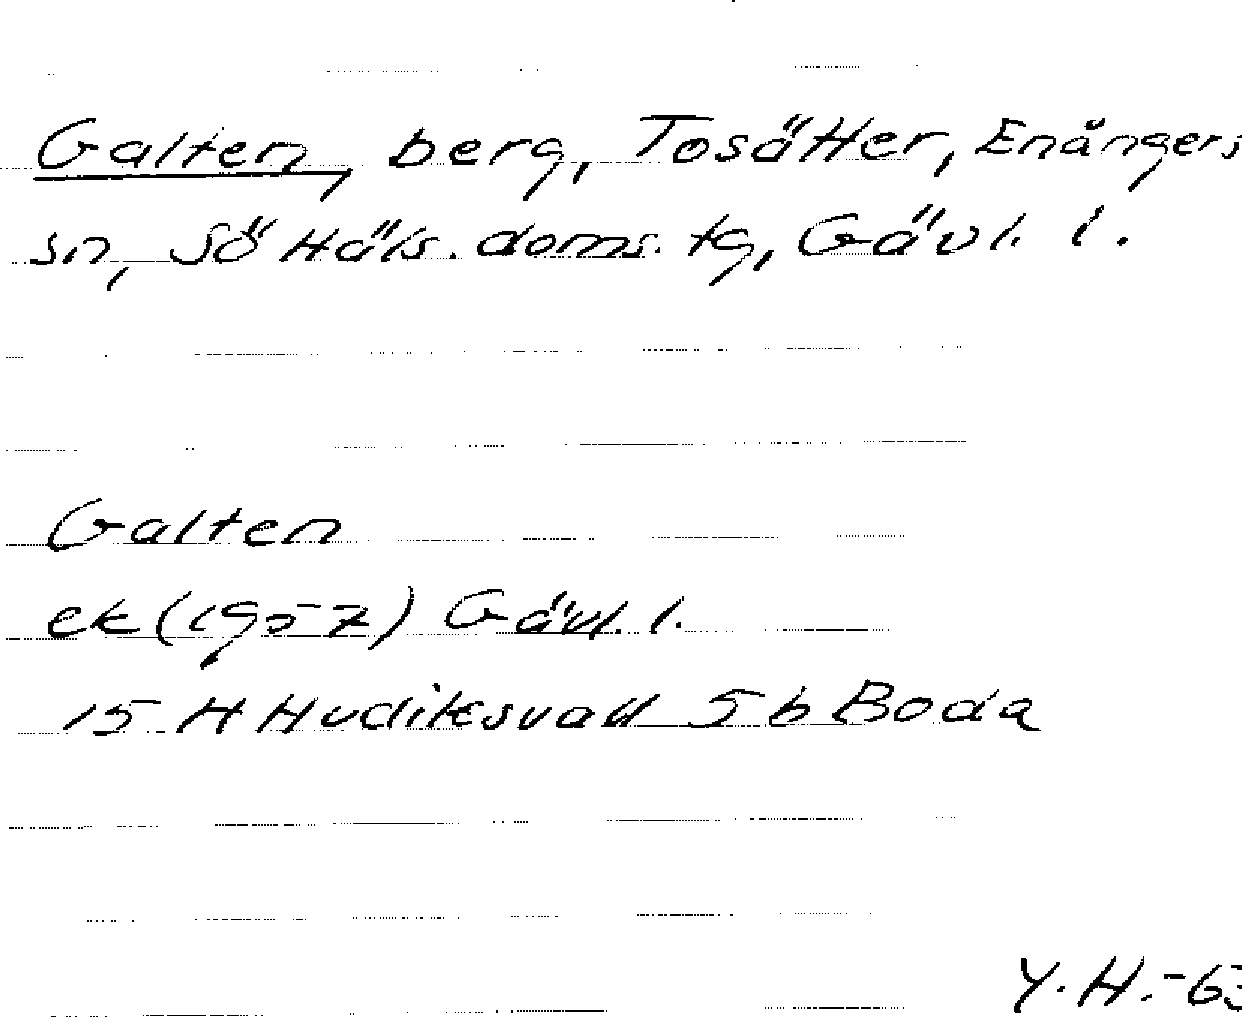 Galten, berg, Tosätter, Enångers
sn, Sö Häls. doms. tg, Gävl. l.
Galten
ek (1957) Gävl. l.
15 H Hudiksvall 5 b Boda
Y. H. -63